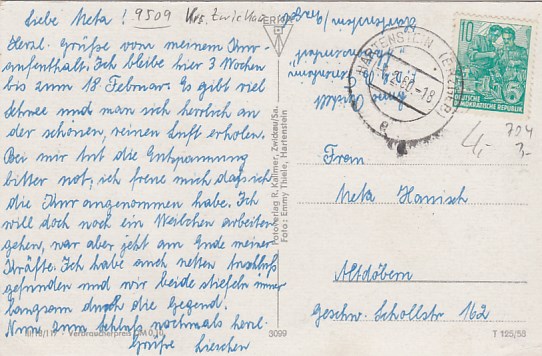 Liebe Meta! 9509 Krs. Zwickau
Herzl. Grüße von meinem Kur-
aufenthalt. Ich bleibe hier 3 Wochen
bis zum 18. Februar. Es gibt viel
Schnee und man sich herrlich an
der schönen, reinen Luft erholen.
Bei mir tut die Entspannung
bitter not, ich freue mich daß ich
die Kur angenommen habe. Ich
will doch noch ein Weilchen arbeiten
gehen, war aber jetzt am Ende meiner
Kräfte. Ich habe auch netten Anschluß
gefunden und wir beide stiefeln immer
langsam durch die Gegend.
Nun zum Schluß nochmals herzl.
Grüße Lieschen
III/18/117 · Verbraucherpreis DM 0,10
3099
T 125/58
Fotoverlag R. Kallmer, Zwickau/Sa.
Foto: Emmy Thiele, Hartenstein
HARTENSTEIN (ERZGEB)
60.-18
e
10
DEUTSCHE
DEMOKRATISCHE REPUBLIK
4,-
704
3,-
Frau
Meta Hanisch
Altdöbern
Geschw. Schollstr 162